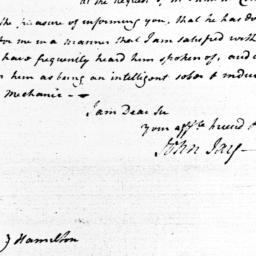 at the request of
the pleasure of informing you, that he has do
for me in a manner that I am satisfied with
have frequently heard him spoken of, and
him as being an intelligent sober & indus
Mechanic —
I am Dear Sir
Your affte. friend &
John Jay —
Hamilton